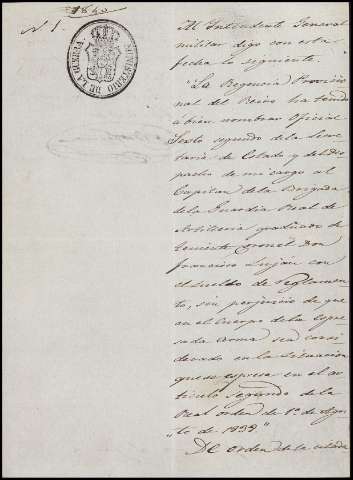 1840
N. 1.
MINISTERIO DE LA GUERRA
Al Intendente General
militar digo con esta
fecha lo siguiente.
"La Regencia Provisio
nal del Reino ha tenido
a bien nombrar Oficial
Sexto segundo de la Secre
taria de Estado y del Des
pacho de mi cargo al
Capitan de la Brigada
de la Guardia Real de
Artilleria graduado de
teniente coronel Don
Francisco Luján con
el sueldo de reglamen
to, sin perjuicio de que
en el Cuerpo de la espre
sada arma sea consi
derado en la situacion
que se espresa en el ar
ticulo segundo de la
Real orden de 1º de Agos
"to de 1839"
De orden de la citada